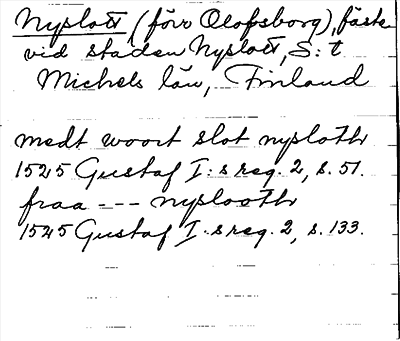 Nyslott (förr Olofsborg), fäste
vid staden Nyslott, S:t
Michels län, Finland
medt woort slot nyslothr
1525 Gustaf I:s reg. 2, s. 51.
fraa --- nyslooth
1525 Gustaf I:s reg. 2, s. 133.